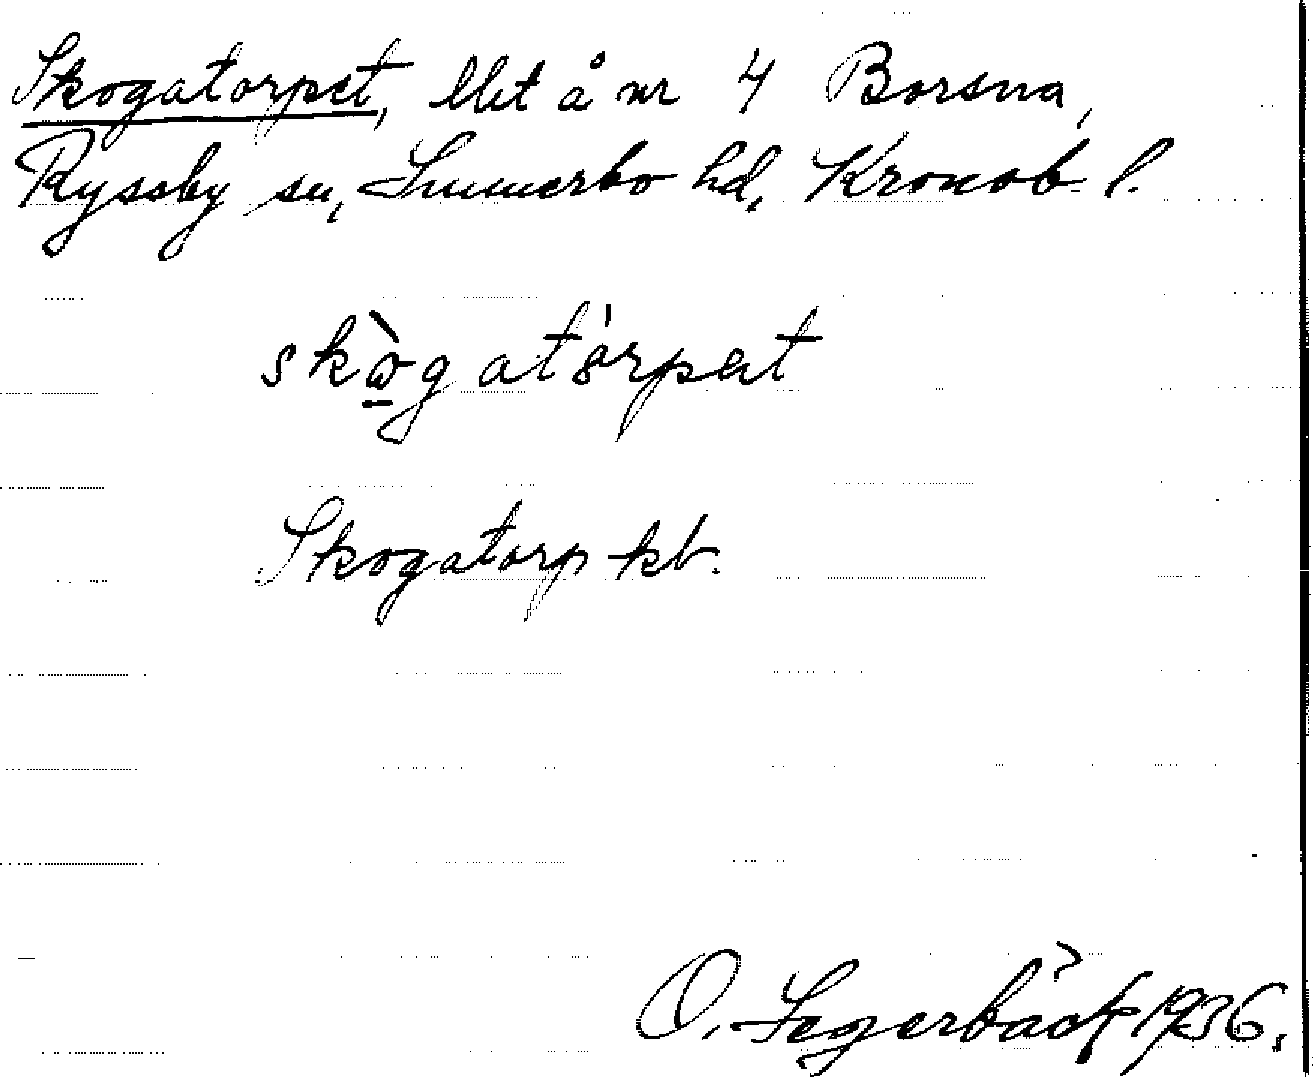 Skogatorpet, llet å nr 4 Borsna,
Ryssby sn, Sunnerbo hd, Kronob. l.
skògatórpet
Skogatorp kb.
O. Segerbäck 1936.